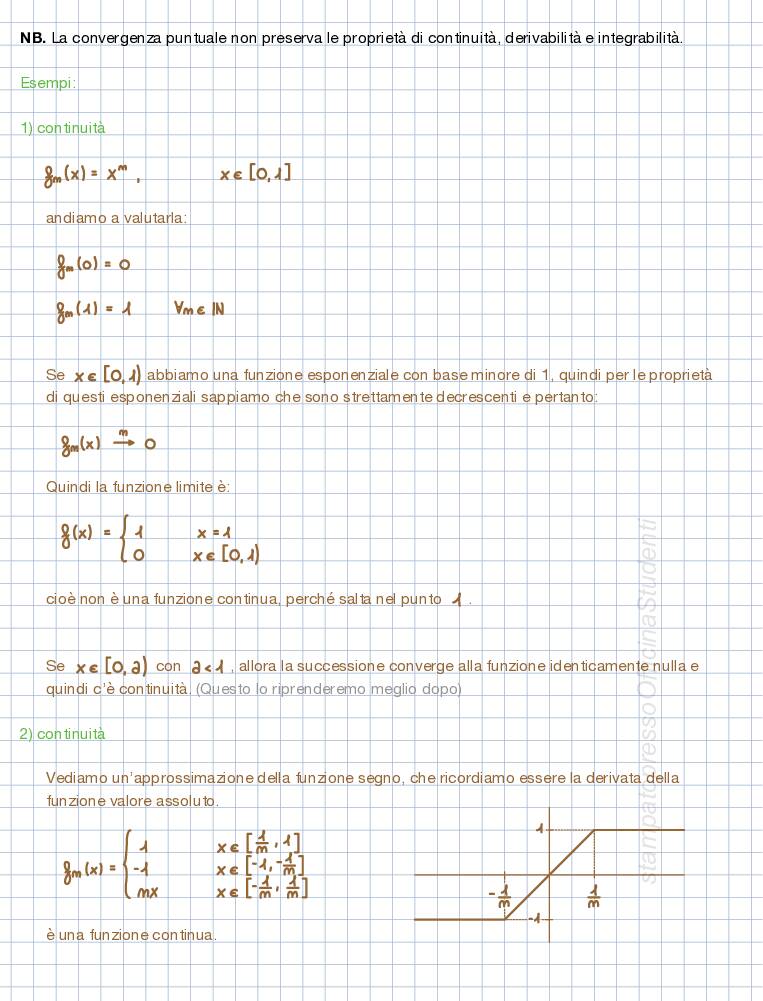 NB. La convergenza puntuale non preserva le proprietà di continuità, derivabilità e integrabilità.
Esempi:
1) continuità
fₘ(x) = xᵐ , x ∈ [0,1]
andiamo a valutarla:
fₘ(0) = 0
fₘ(1) = 1 ∀m ∈ ℕ
Se x ∈ [0,1) abbiamo una funzione esponenziale con base minore di 1, quindi per le proprietà
di questi esponenziali sappiamo che sono strettamente decrescenti e pertanto:
fₘ(x) →ᵐ 0
Quindi la funzione limite è:
f(x) = { 1 x = 1
0 x ∈ [0,1)
cioè non è una funzione continua, perché salta nel punto 1 .
Se x ∈ [0,a) con a < 1 , allora la successione converge alla funzione identicamente nulla e
quindi c'è continuità. (Questo lo riprenderemo meglio dopo)
2) continuità
Vediamo un'approssimazione della funzione segno, che ricordiamo essere la derivata della
funzione valore assoluto.
fₘ(x) = { 1 x ∈ [1/m , 1]
-1 x ∈ [-1, -1/m]
mx x ∈ [-1/m , 1/m]
1
-1/m
1/m
-1
è una funzione continua.
stampatopressoOfficinaStudenti